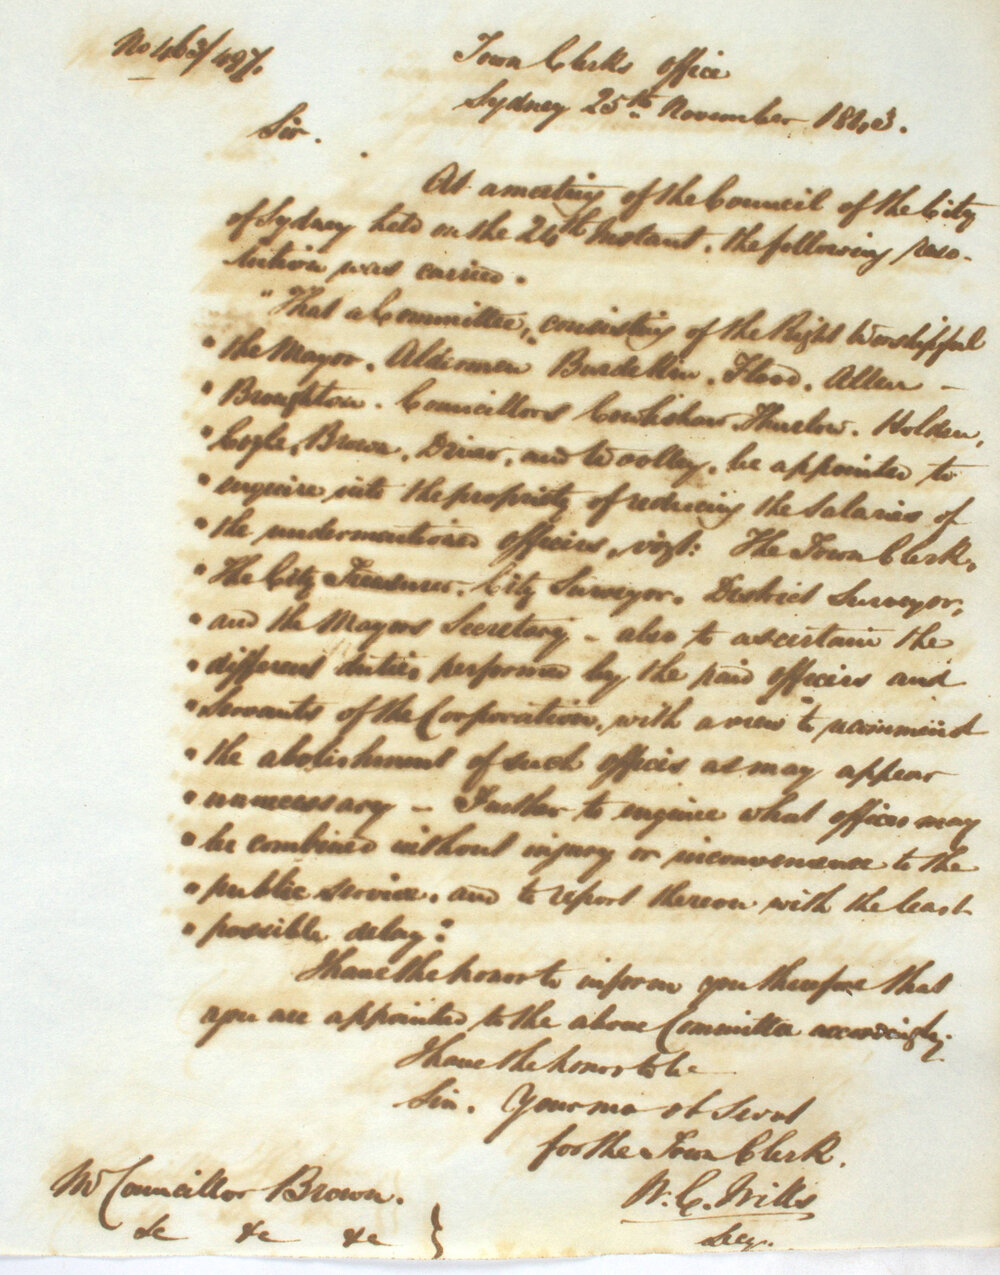 No 463/487.
Town Clerks Office
Sydney 25th November 1843.
Sir.
At a meeting of the Council of the City
of Sydney held on the 24th Instant, the following reso-
lution was carried.
"That a Committee, consisting of the Right Worshipful
" the Mayor. Aldermen Burdekin. Flood. Allen –
" Broughton. Councillors Cowlishaw. Thurlow. Holden,
" Coyle, Brown, Driver, and Woolley, be appointed to
" enquire into the propriety of reducing the Salaries of
" the undermentioned officers, vizt: The Town Clerk,
" The City Treasurer. City Surveyor. District Surveyor,
" and the Mayors Secretary – also to ascertain the
" different duties performed by the paid officers and
" Servants of the Corporation, with a view to recommend
" the abolishment of such offices as may appear
" unnecessary – Further to enquire what offices may
" be combined without injury or inconvenience to the
" public service, and to report thereon with the least
" possible delay."
I have the honor to inform you therefore that
you are appointed to the above Committee accordingly.
I have the honor to be
Sir. Your mo obt Servt
for the Town Clerk.
W. C. Wills
Secy.
Mr Councillor Brown.
&c &c &c }